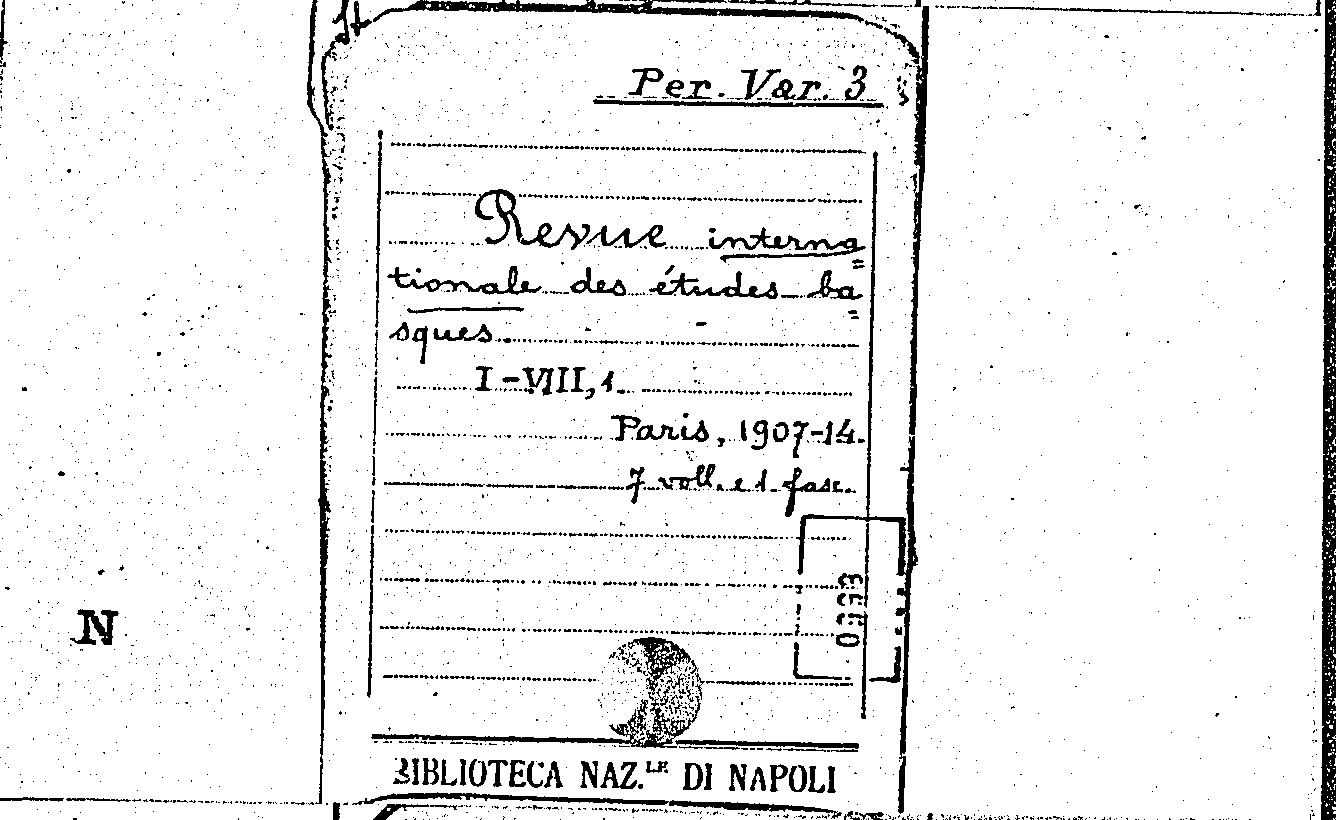 Per. Var. 3
Revue interna=
tionale des études ba=
sques.
I-VIII, 1.
Paris, 1907-14.
7 voll. e 1 fasc.
N
BIBLIOTECA NAZ.LE DI NAPOLI